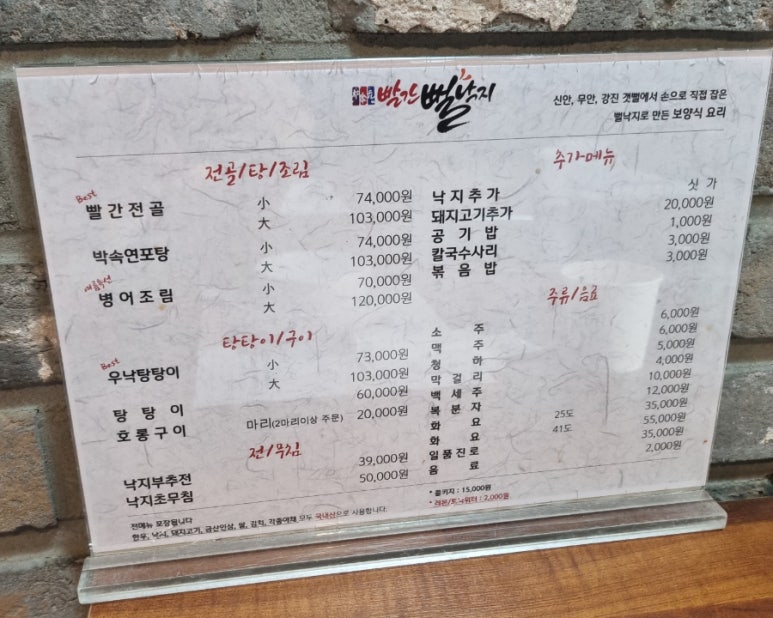 빨간 뻘낙지
신안, 무안, 강진 갯뻘에서 손으로 직접 잡은
뻘낙지로 만든 보양식 요리
전골/탕/조림
Best
빨간전골 小 74,000원
大 103,000원
박속연포탕 小 74,000원
大 103,000원
여름특선
병어조림 小 70,000원
大 120,000원
탕탕이/구이
Best
우낙탕탕이 小 73,000원
大 103,000원
탕탕이 60,000원
호롱구이 마리(2마리이상 주문) 20,000원
전/무침
낙지부추전 39,000원
낙지초무침 50,000원
전메뉴 포장됩니다
한우, 낙지, 돼지고기, 금산인삼, 쌀, 김치, 각종야채 모두 국내산으로 사용합니다.
추가메뉴
낙지추가 싯가
돼지고기추가 20,000원
공기밥 1,000원
칼국수사리 3,000원
볶음밥 3,000원
주류/음료
소주 6,000원
맥주 6,000원
청하 5,000원
막걸리 4,000원
백세주 10,000원
복분자 12,000원
화요 25도 35,000원
화요 41도 55,000원
일품진로 35,000원
음료 2,000원
* 콜키지 : 15,000원
* 레몬/토닉워터 : 2,000원